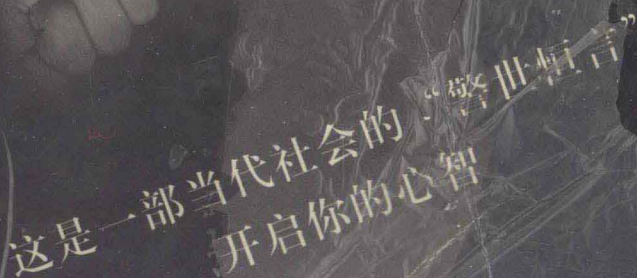 这是一部当代社会的“警世恒言”
开启你的心智